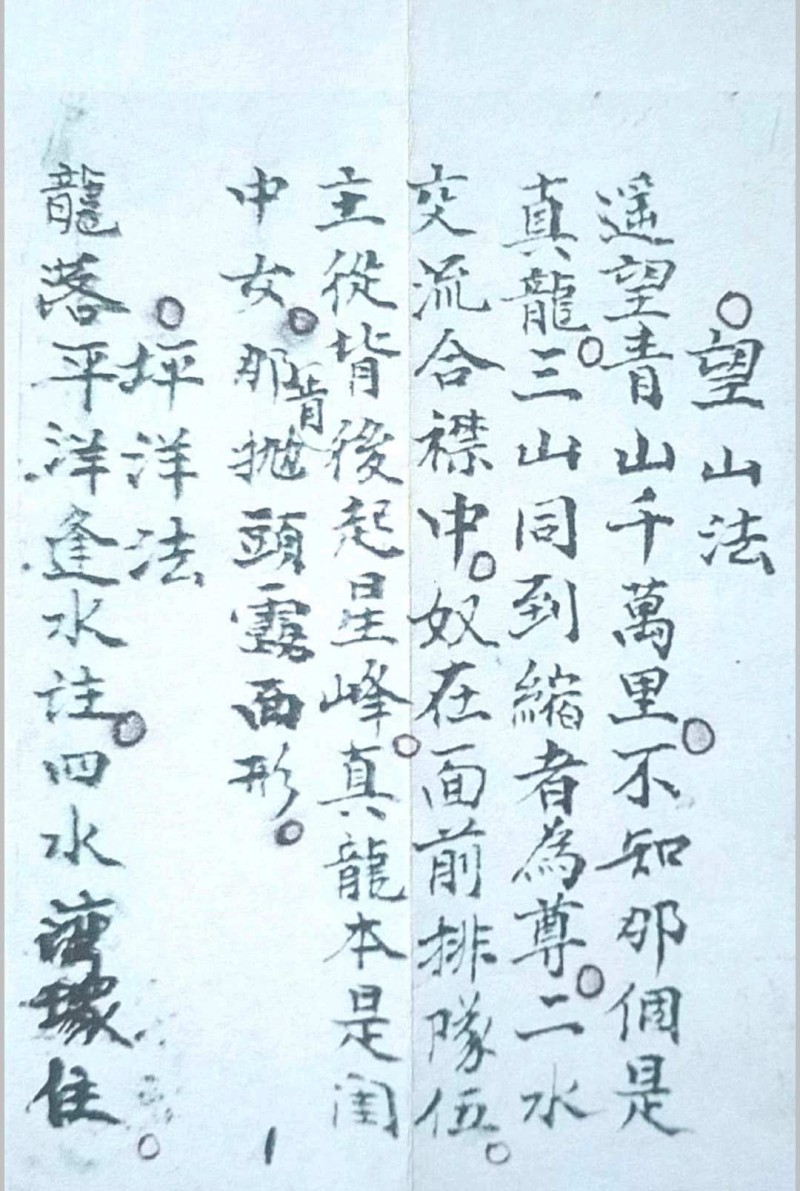 ○望山法
遥望青山千萬里○不知那個是
真龍○三山同到縮者為尊○二水
交流合襟中○奴在面前排隊伍○
主從背後起星峰○真龍本是闺
中女○那肯抛頭露面形○
○坪洋法
龍落平洋逢水注○四水灣環住○